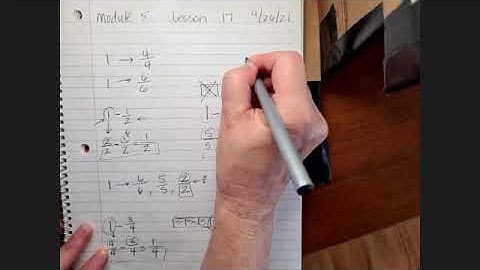 Module 5 Lesson 17 9/20/21
1 → 4/4
1 → 6/6
1 - 1/2 ←
2/2 - 1/2 = 1/2
1 -
5/5
1 → 6/6, 5/5, 2/2 ←
1 - 3/4
4/4 - 3/4 = 1/4